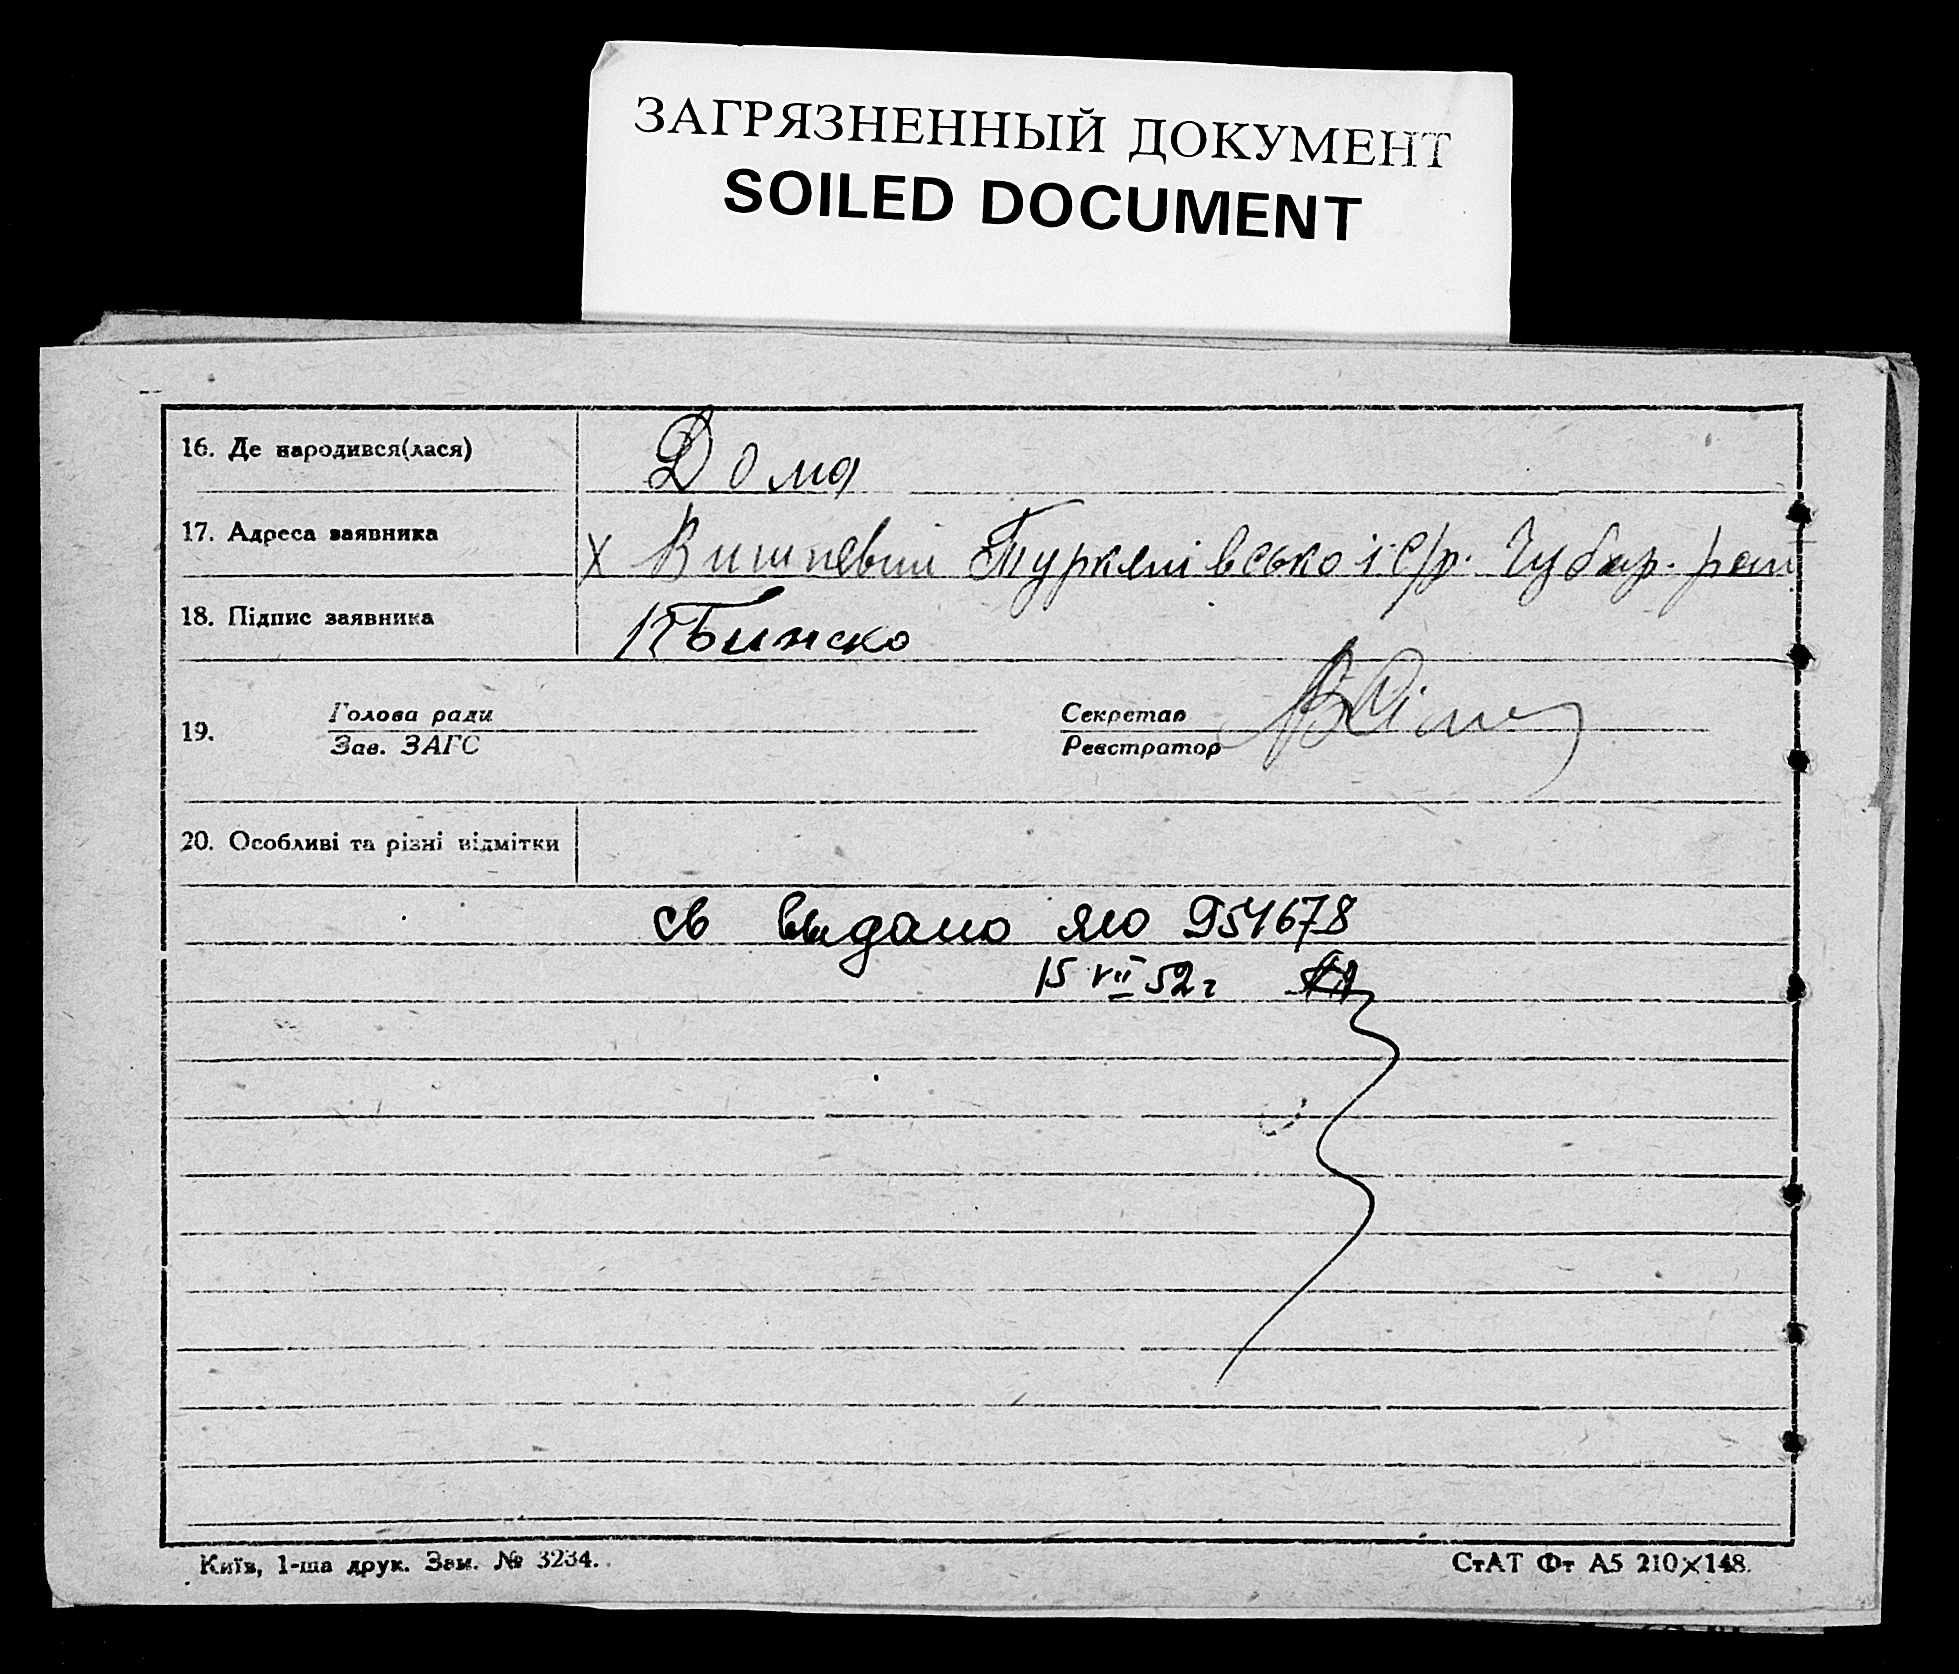 ЗАГРЯЗНЕННЫЙ ДОКУМЕНТ
SOILED DOCUMENT
16. Де народився(лася) Дома
17. Адреса заявника х Вишневий Туркенівської с/р. Чубар. рай
18. Підпис заявника
19. Голова ради Секретар
Зав. ЗАГС Реєстратор
20. Особливі та різні відмітки
св выдано яю 954678
15 VII 52 г
Київ, 1-ша друк. Зам. № 3234.
СтАТ Фт А5 210×148.